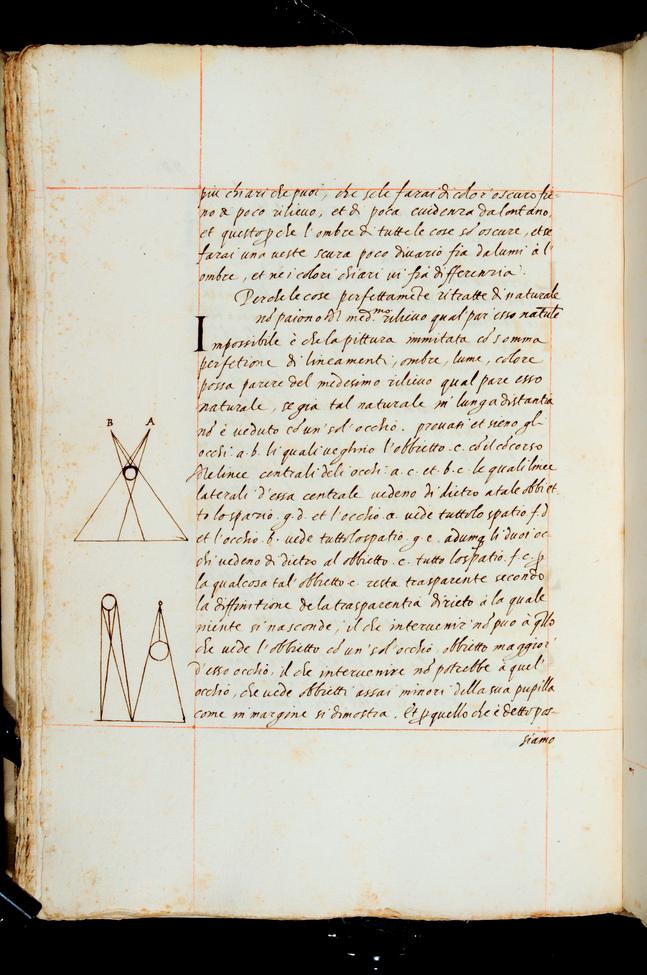 piu chiari che puoi, che se le farai di color' oscuro fie-
no di poco rilievo, et di poca evidenza da lontano,
et questo p che l'ombre di tutte le cose sō oscure, et se
farai una veste scura poco divario fia da lumi à l'
ombre, et ne i colori chiari vi fia differenzia.
Perche le cose perfettamēte ritratte di naturale
nō paiono del med.mo rilievo qual par' esso natulē
Impossibile è che la pittura immitata cō somma
perfetione di lineamenti, ombre, lume, colore
possa parere del medesimo rilievo qual pare esso
naturale, se gia tal naturale in' lunga distantia
nō è veduto cō un' sol' occhio. provasi et sieno gl'
occhi .a.b. li quali veghino l'obbietto .c. cō il cōcorso
de linee centrali deli occhi .a.c. et .b.c. le quali linee
laterali d'essa centrale vedeno di dietro a tale obbiet-
to lo spazio .g.d. et l'occhio .a. vede tutto lo spatio .f.d
et l'occhio .b. vede tutto lo spatio .g.e. adunq li duoi oc-
chi vedeno di dietro al obbietto .c. tutto lo spatio .f.e. p
la qual cosa tal' obbietto .c. resta trasparente secondo
la diffinitione de la trasparentia dirieto à la quale
niente si nasconde, il che intervenir nō puo à qllo
che vede l'obbietto cō un' sol' occhio, obbietto maggior'
d'esso occhio, il che intervenire nō potrebbe à quel'
occhio, che vede obbietti assai minori della sua pupilla
come in margine si dimostra. Et p quello che è detto pos-
siamo
B A